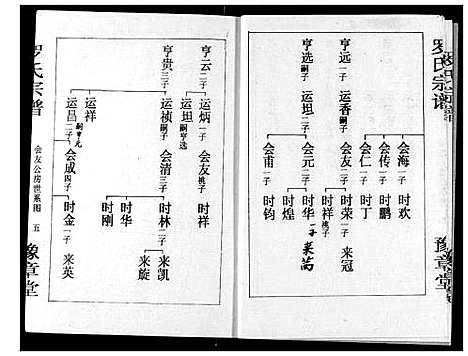 罗氏宗谱
豫章堂
亨远一子
亨选嗣子
运香嗣子
运坦二子
会海一子
会传一子
会仁一子
会友二子
会元二子
会甫一子
时欢
时鹏
时丁
时荣一子
时祥桃子
时华一子
时煌
时钧
来冠
来嵩
亨云二子
亨贵三子
运炳一子
运坦嗣亨选
运祯嗣子
运祥
运昌二子
会友桃子
会清三子
会成四子
时祥
时林二子
时华
时刚
时金一子
来凯
来旋
来英
罗氏宗谱
会友公房世系图
五
豫章堂